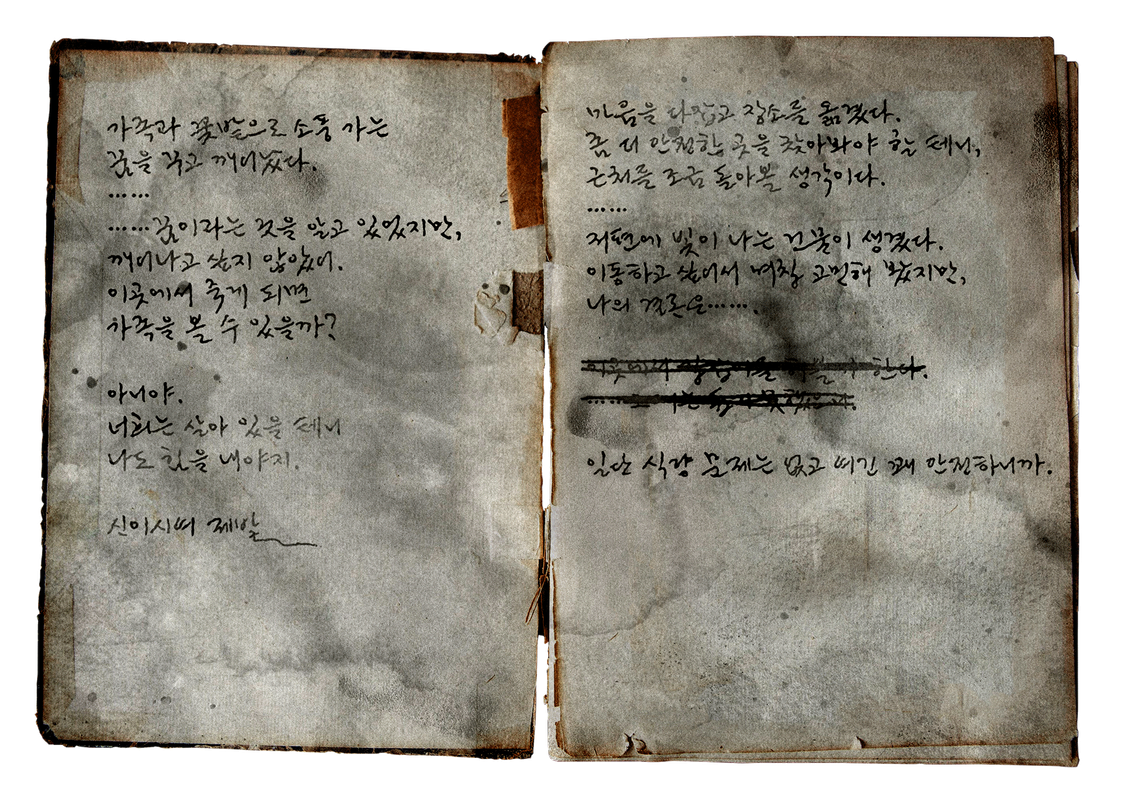 가족과 꽃밭으로 소풍 가는
꿈을 꾸고 깨어났다.
……
……꿈이라는 것을 알고 있었지만,
깨어나고 싶지 않았어.
이곳에서 죽게 되면
가족을 볼 수 있을까?
아니야.
너희는 살아 있을 테니
나도 힘을 내야지.
신이시여 제발
마음을 다잡고 장소를 옮겼다.
좀 더 안전한 곳을 찾아봐야 할 테니,
근처를 조금 돌아볼 생각이다.
……
저편에 빛이 나는 건물이 생겼다.
이동하고 싶어서 며칠 고민해 봤지만,
나의 결론은…….
이곳에서 한다.
일단 식량 문제는 없고 여긴 꽤 안전하니까.